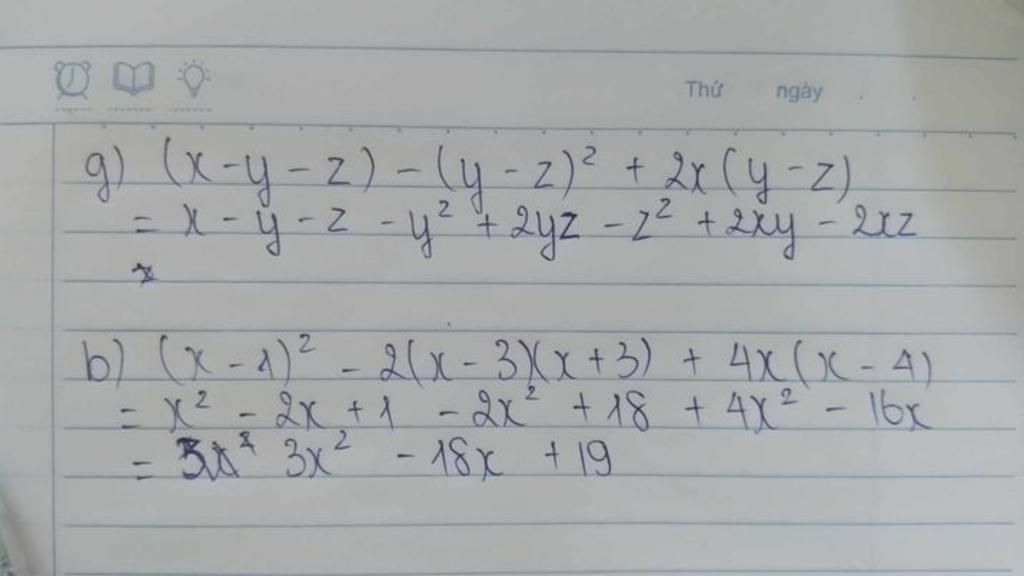 Thứ ngày
g) (x - y - z) - (y - z)² + 2x(y - z)
= x - y - z - y² + 2yz - z² + 2xy - 2xz
b) (x - 1)² - 2(x - 3)(x + 3) + 4x(x - 4)
= x² - 2x + 1 - 2x² + 18 + 4x² - 16x
= 3x² - 18x + 19